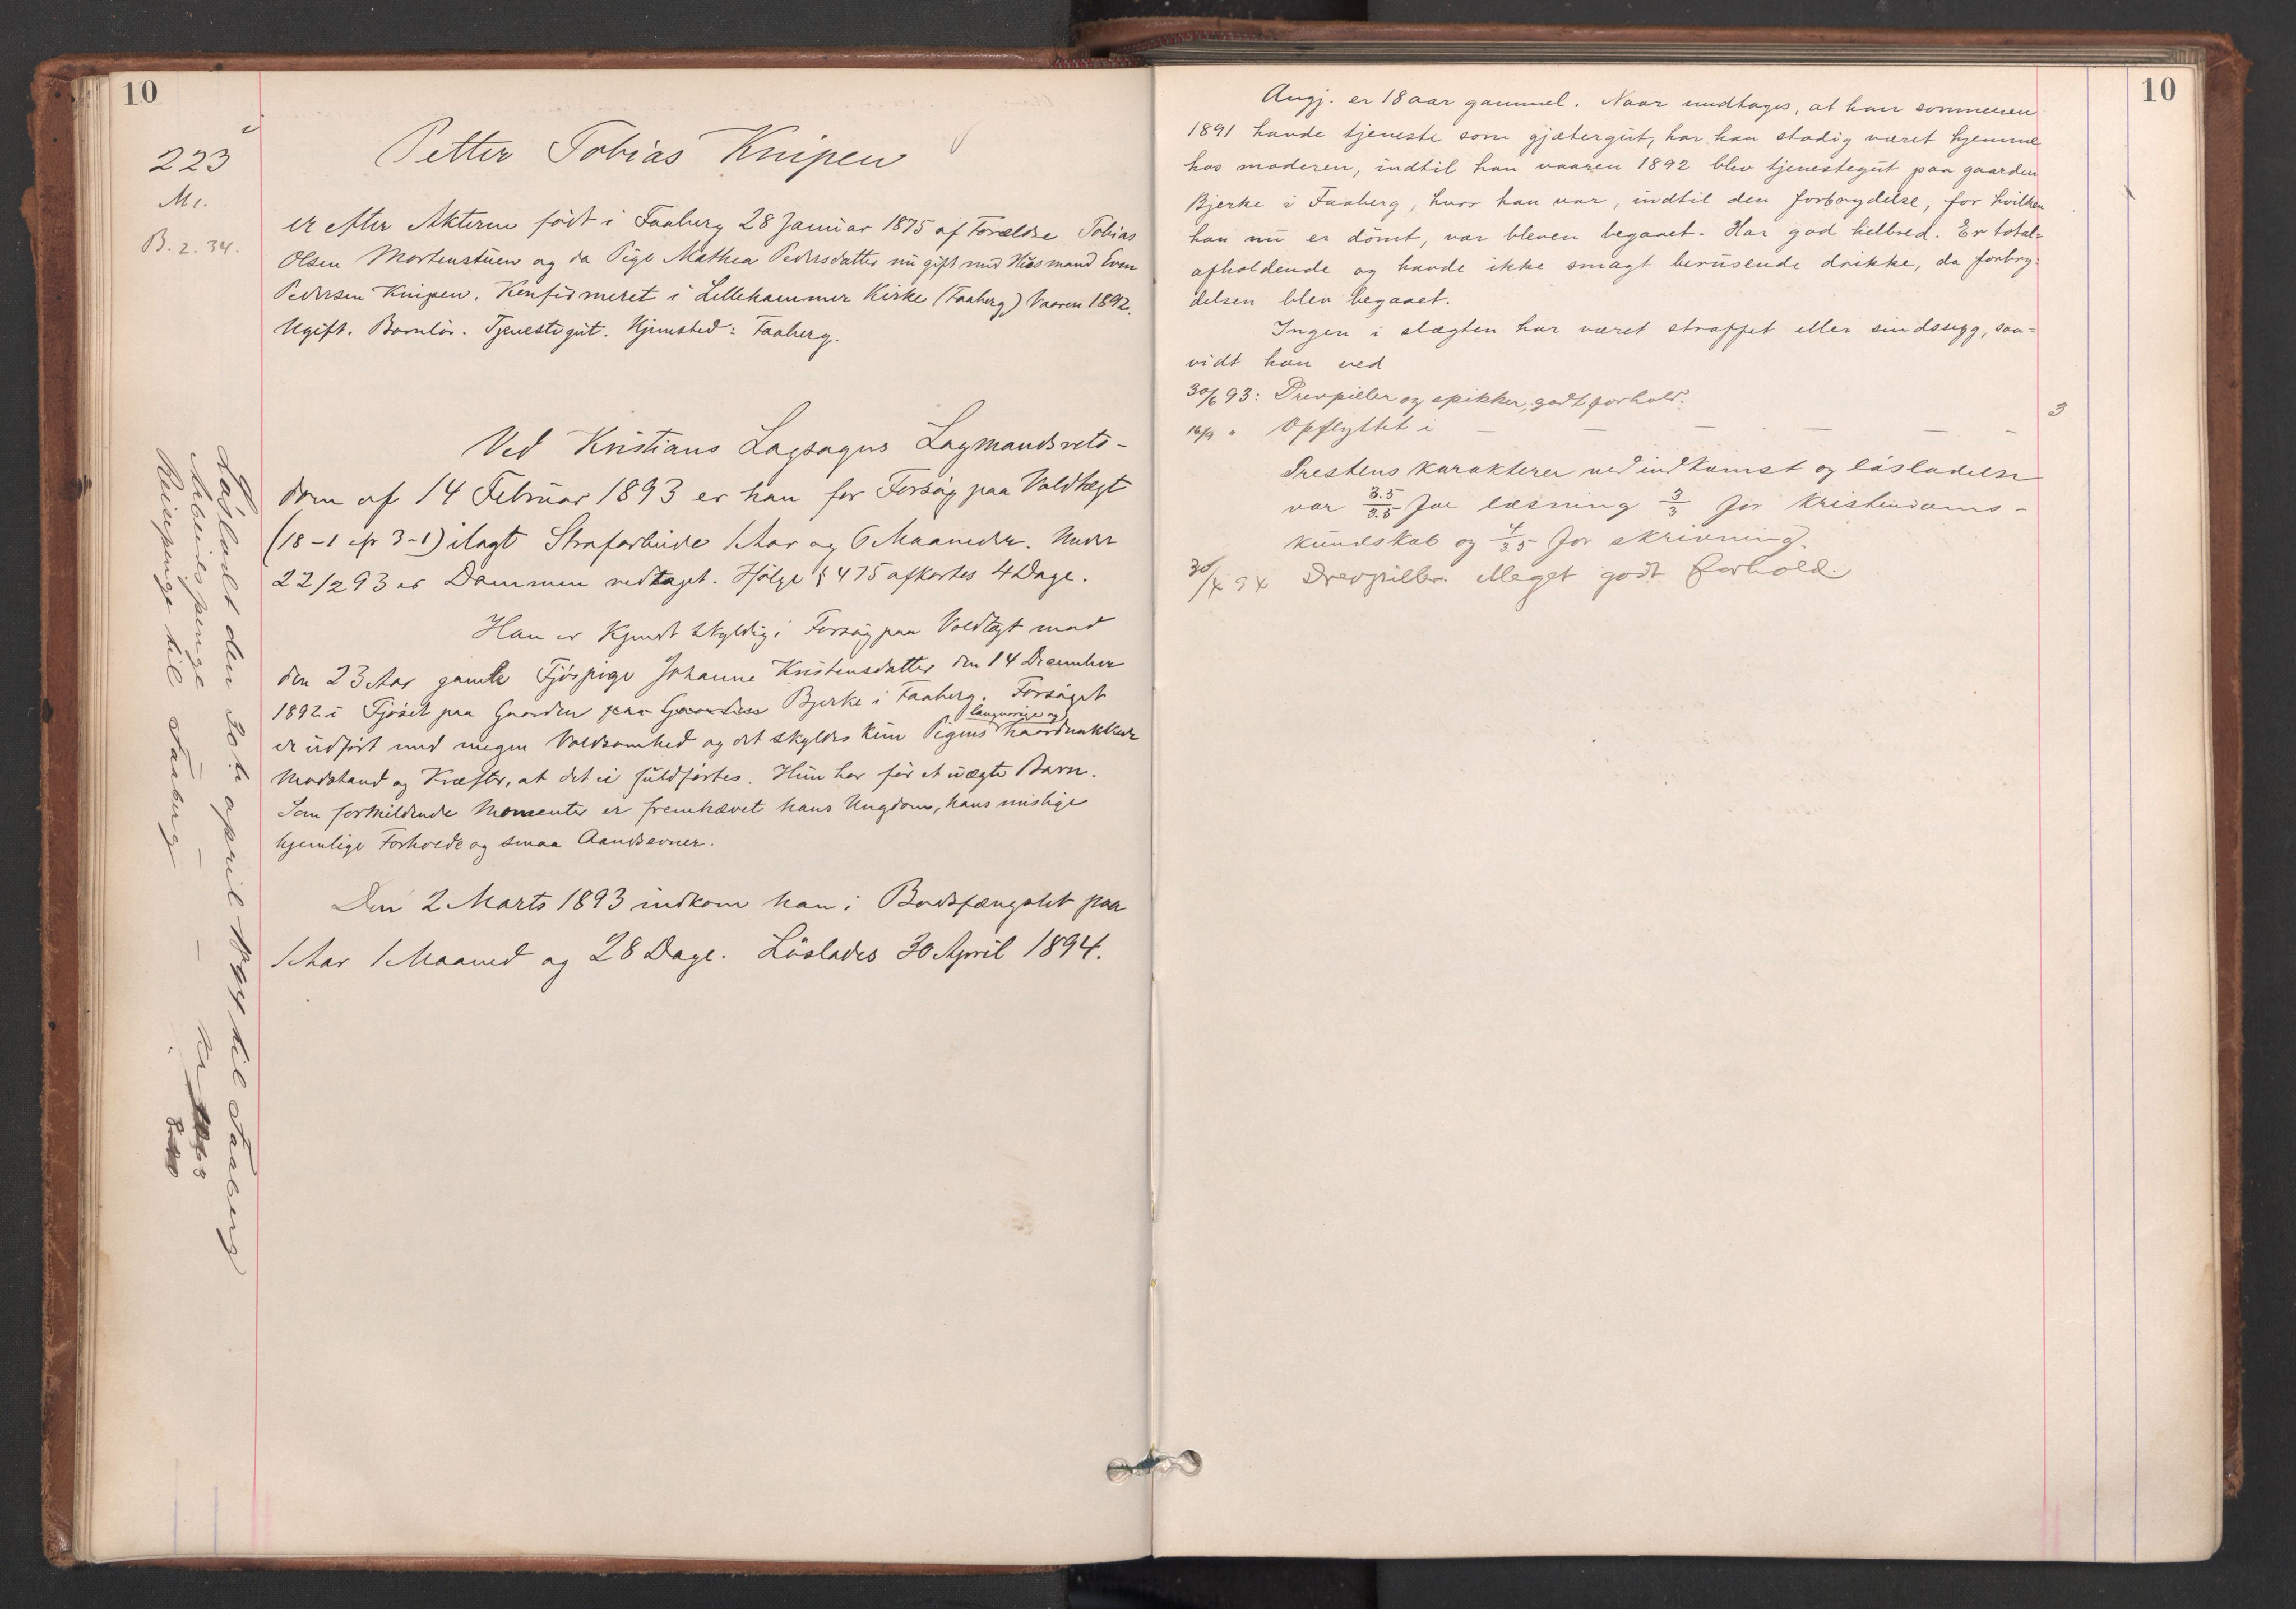 10
223
Petter Tobias Knipen
M1.
B. 2. 34.
er efter Akterne född i Faaberg 28 Januar 1875 af Forældre Tobias
Olsen Mortenstuen og da Pige Mathea Pedersdatter nu gift med Husmand Even
Pedersen Knipen. Konfirmeret i Lillehammer Kirke (Faaberg) Vaaren 1892.
Ugift. Barnlös. Tjenestegut. Hjemsted: Faaberg.
Ved Kristians Lagsogns Lagmandsrets-
dom af 14 Februar 1893 er han for Forsög paa Voldtægt
(18-1 cfr 3-1) ilagt Strafarbeide 1 Aar og 6 Maaneder. Under
22/2 93 er Dommen vedtaget. Ifölge § 475 afkortes 4 Dage.
Han er kjendt skyldig i Forsög paa Voldtægt mod
den 23 Aar gamle Fjöspige Johanne Kristensdatter den 14 December
1892 i Fjöset paa Gaarden paa Gaarden Bjerke i Faaberg. Forsöget
langvarige og
er udfört med megen Voldsomhed og det skyldes kun Pigens haardnakkede
Modstand og Kræfter, at det ei fuldförtes. Hun har för et uægte Barn.
Som formildende Momenter er fremhævet hans Ungdom, hans mislige
hjemlige Forholde og smaa Aandsevner.
Den 2 Marts 1893 indkom han i Bodsfængslet paa
1 Aar 1 Maaned og 28 Dage. Löslades 30 April 1894.
Lösladt den 30te april 1894 til Faaberg
Arbeidspenge — — Kr
Reisepenge til Faaberg
10
Angj. er 18 aar gammel. Naar undtages, at han sommeren
1891 havde tjeneste som gjætergut, har han stadig været hjemme
hos moderen, indtil han vaaren 1892 blev tjenestegut paa gaarden
Bjerke i Faaberg, hvor han var, indtil den forbrydelse, for hvilken
han nu er dömt, var bleven begaaet. Har god helbred. Er total=
afholdende og havde ikke smagt berusende drikke, da forbry=
delsen blev begaaet.
Ingen i slægten har været straffet eller sindssyg, saa=
vidt han ved
30/6 93: Drevpiller og spikker, godt forhold.
16/9 " Opflyttet i — — — — — 3
Prestens karakterer ved indkomst og lösladelse
var 3.5/3.5 for læsning 3/3 for kristendoms-
kundskab og 4/3.5 for skrivning.
30/4 94 Drevpiller. Meget godt forhold.